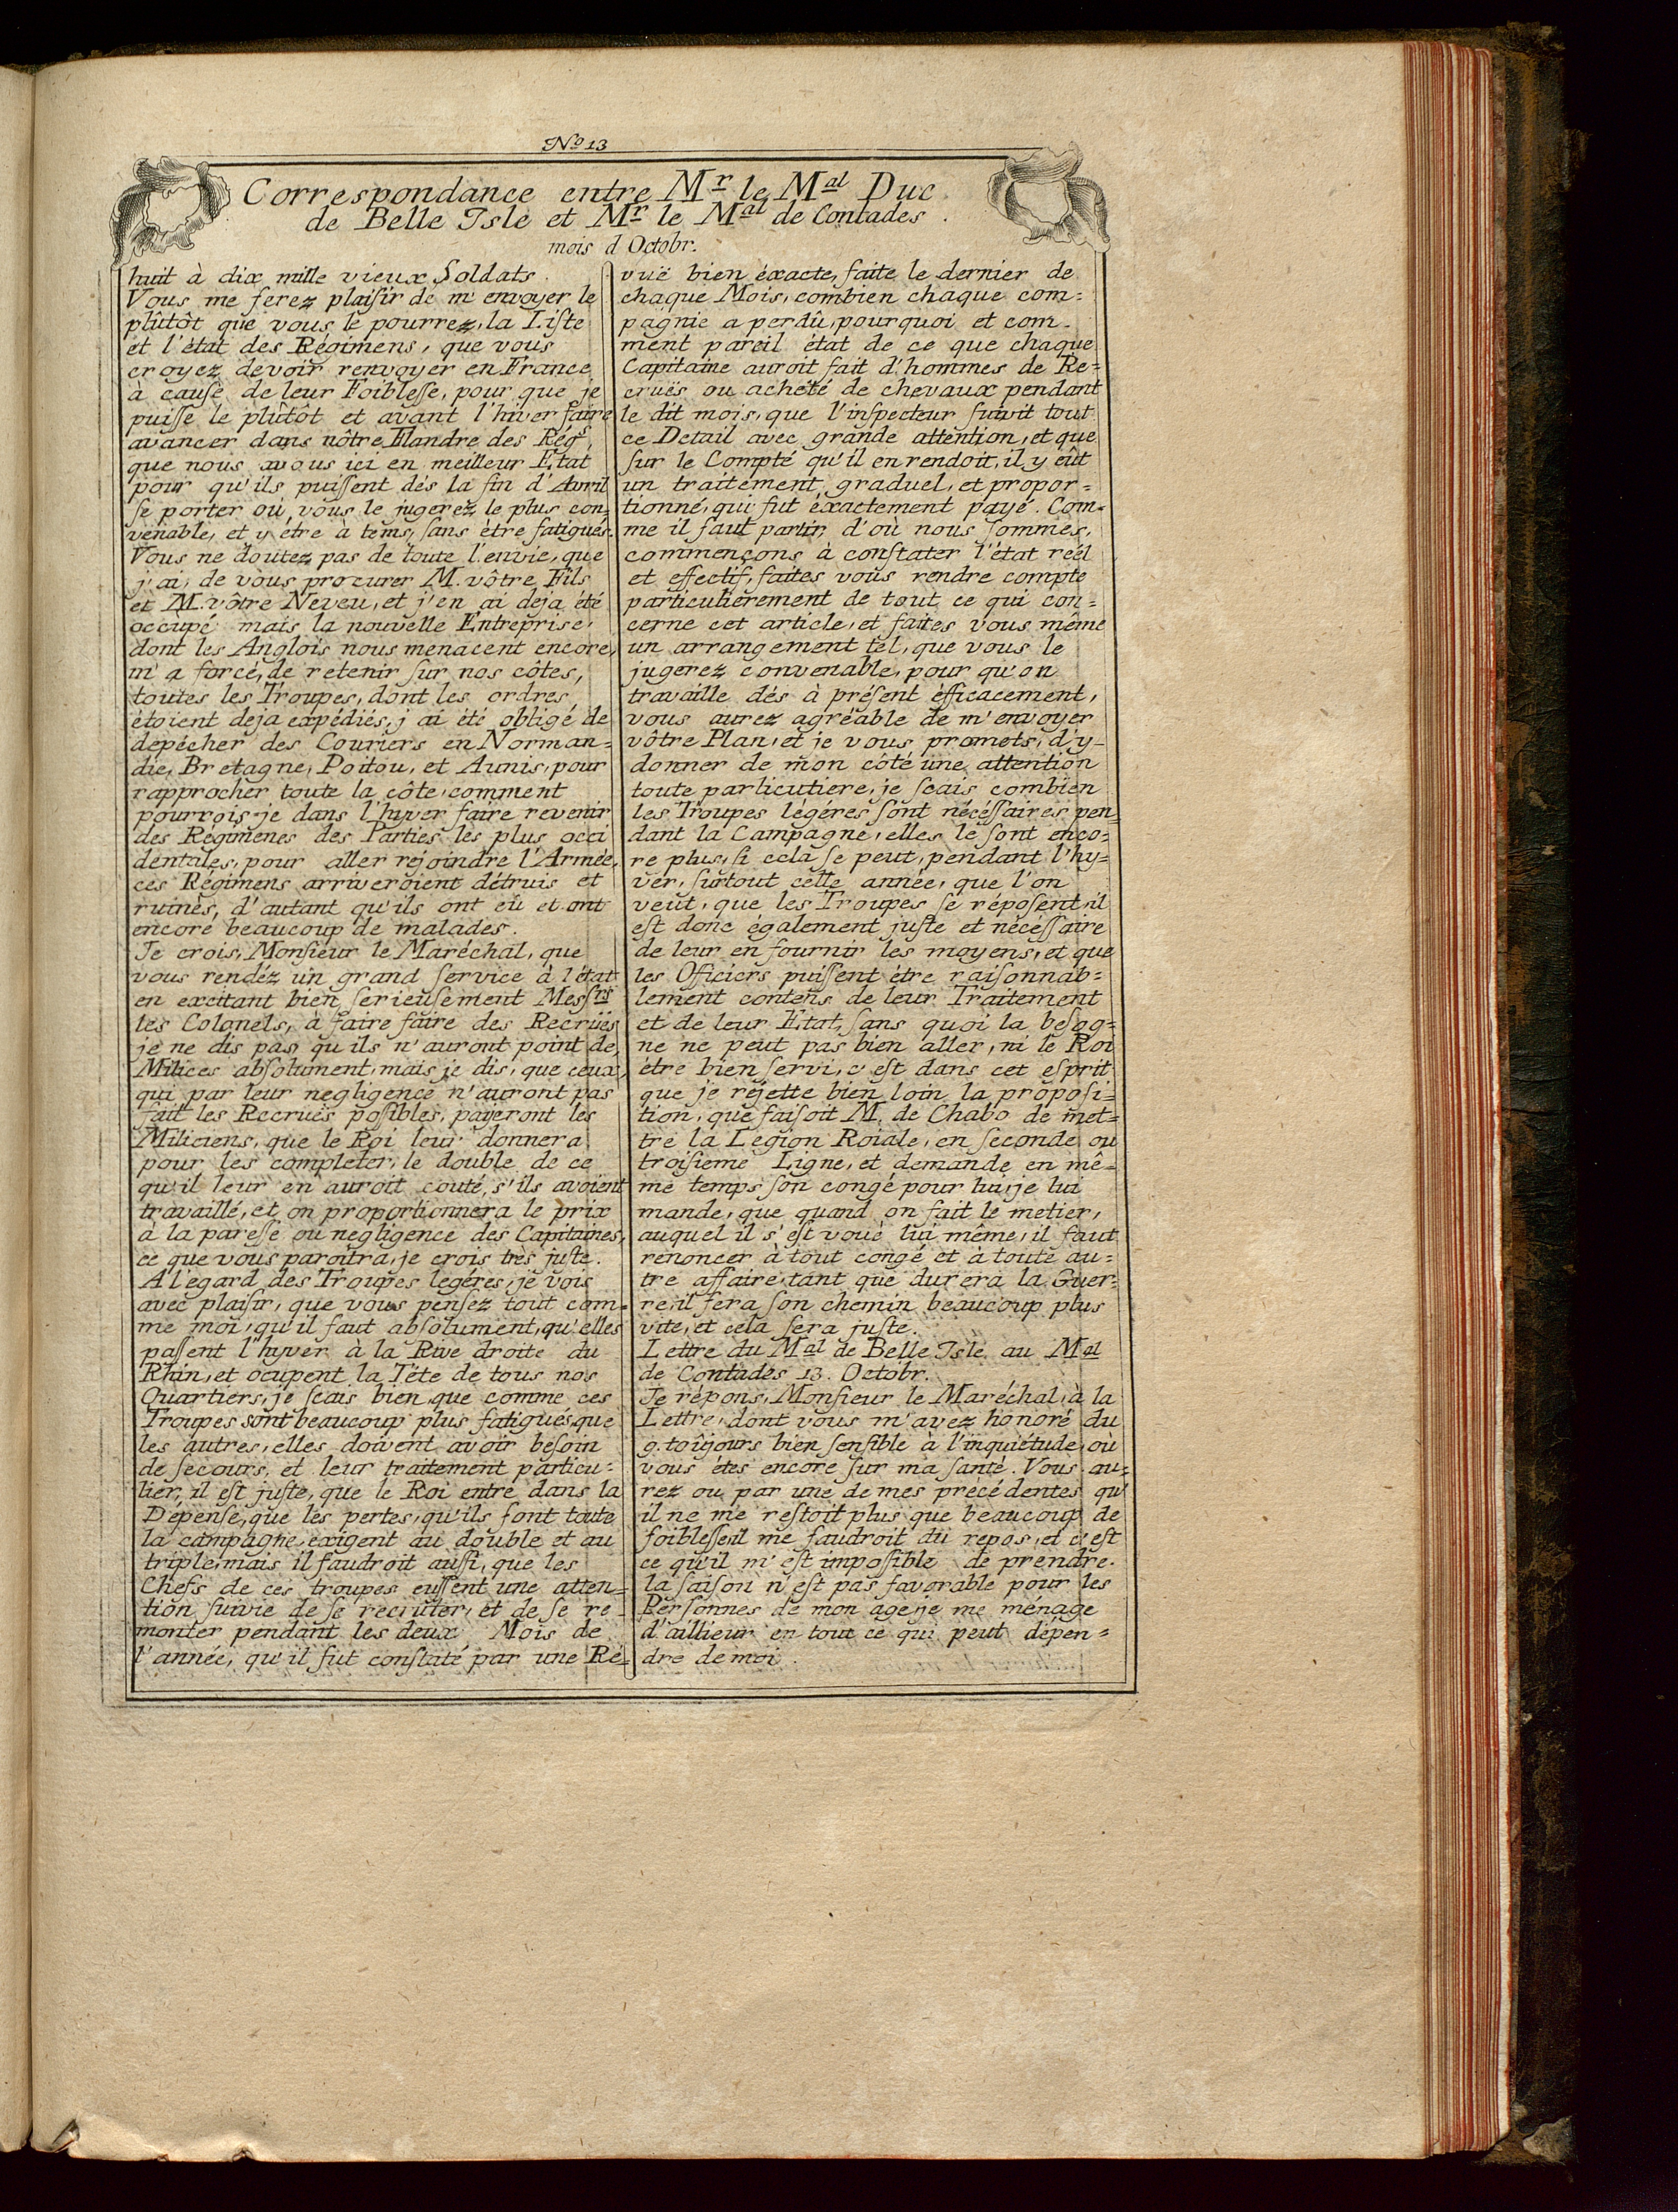 No 13
Correspondance entre Mr le Mal Duc
de Belle Isle et Mr le Mal de Contades.
mois d Octobr.
huit à dix mille vieux Soldats.
Vous me ferez plaisir de m'envoyer le
plûtôt que vous le pourrez, la Liste
et l'état des Régimens, que vous
croyez devoir renvoyer en France
à cause de leur Foiblesse, pour que je
puisse le plûtôt et avant l'hiver faire
avancer dans nôtre Flandre des Régs,
que nous avous ici en meilleur Etat
pour qu'ils puissent dés la fin d'Avril
se porter où vous le jugerez le plus con=
venable, et y être à tems, sans être fatigués.
Vous ne doutez pas de toute l'envie, que
j'ai, de vous procurer M. vôtre Fils
et M. vôtre Neveu, et j'en ai deja été
occupé mais la nouvelle Entreprise,
dont les Anglois nous menacent encore,
m'a forcé, de retenir sur nos côtes,
toutes les Troupes, dont les ordres
étoient deja expédiés, j'ai été obligé de
depécher des Couriers en Norman=
die, Bretagne, Poitou, et Aunis, pour
rapprocher toute la côte, comment
pourrois-je dans l'hyver faire revenir
des Regimenes des Parties les plus occi
dentales, pour aller rejoindre l'Armée,
ces Régimens arriveroient détruis et
ruinès, d'autant qu'ils ont eû et ont
encore beaucoup de malades.
Je crois, Monsieur le Maréchal, que
vous rendéz un grand service à l'état
en excitant bien serieusement Messrs
les Colonels, à faire faire des Recrües
je ne dis pas qu'ils n'auront point de
Milices absolument, mais je dis, que ceux,
qui par leur negligence n'auront pas
fait les Recrues possibles, payeront les
Miliciens, que le Roi leur donnera
pour les completer, le double de ce
qu'il leur en auroit couté, s'ils avoient
travaillé, et on proportionnera le prix
à la paresse ou negligence des Capitaines,
ce que vous paroîtra, je crois très juste.
A l'égard des Troupes legéres, je vois
avec plaisir, que vous pensez tout com=
me moi, qu'il faut absolument, qu'elles
passent l'hyver à la Rive droite du
Rhin, et ocupent la Tête de tous nos
Quartiers, je scais bien que comme ces
Troupes sont beaucoup plus fatigués que
les autres, elles doivent avoir besoin
de secours, et leur traitement particu=
lier, il est juste, que le Roi entre dans la
Dépense, que les pertes, qu'ils font toute
la campagne, exigent au double et au
triple, mais il faudroit aussi, que les
Chefs de ces troupes eussent une atten=
tion suivie de se recruter, et de se re-
monter pendant les deux Mois de
l'année, qu'il fut constaté par une Ré=
vuë bien éxacte, faite le dernier de
chaque Mois, combien chaque com=
pagnie a perdû, pourquoi et com-
ment pareil état de ce que chaque
Capitaine auroit fait d'hommes de Re=
cruës ou achété de chevaux pendant
le dit mois, que l'inspecteur suivit tout
ce Detail avec grande attention, et que
sur le Compté qu'il en rendoit, il y eût
un traitement graduel, et propor=
tionné, qui fut éxactement payé. Com=
me il faut partir d'où nous sommes,
commençons à constater l'état réél
et effectif, faites vous rendre compte
particulierement de tout ce qui con=
cerne cet article, et faites vous même
un arrangement tel, que vous le
jugerez convenable, pour qu'on
travaille dés à présent éfficacement,
vous aurez agréable de m'envoyer
vôtre Plan, et je vous promets, d'y-
donner de mon côté une attention
toute particutiere, je scais combien
les Troupes légéres sont nécéssaires pen=
dant la Campagne, elles le sont enco=
re plus, si cela se peut, pendant l'hy=
ver, surtout cette année, que l'on
veut, que les Troupes se réposent, il
est donc également juste et nécéssaire
de leur en fournir les moyens, et que
les Officiers puissent être raisonnab=
lement contens de leur Traitement
et de leur Etat, sans quoi la besog=
ne ne peut pas bien aller, ni le Roi
être bien servi, c'est dans cet esprit
que je réjette bien loin la proposi=
tion, que faisoit M. de Chabo de met=
tre la Legion Roiale, en seconde ou
troisieme Ligne, et demande en mê=
me temps son congé pour lui, je lui
mande, que quand on fait le metier,
auquel il s'est voué lui même, il faut
renoncer à tout congé et à toute au=
tre affaire, tant que durera la Guer=
re, il fera son chemin beaucoup plus
vite, et cela sera juste.
Lettre du Mal de Belle Isle au Mal
de Contades 13. Octobr.
Je répons, Monsieur le Maréchal, à la
Lettre, dont vous m'avez honoré du
9. toûjours bien sensible à l'inquiétude, où
vous étes encore sur ma santé. Vous au=
rez ou par une de mes precédentes qu'
il ne me restoit plus que beaucoup de
foiblesse, il me faudroit du repos, et c'est
ce qu'il m'est impossible de prendre.
la saison n'est pas favorable pour les
Personnes de mon age, je me ménage
d'aillieur en tout ce qui peut dépen=
dre de moi.